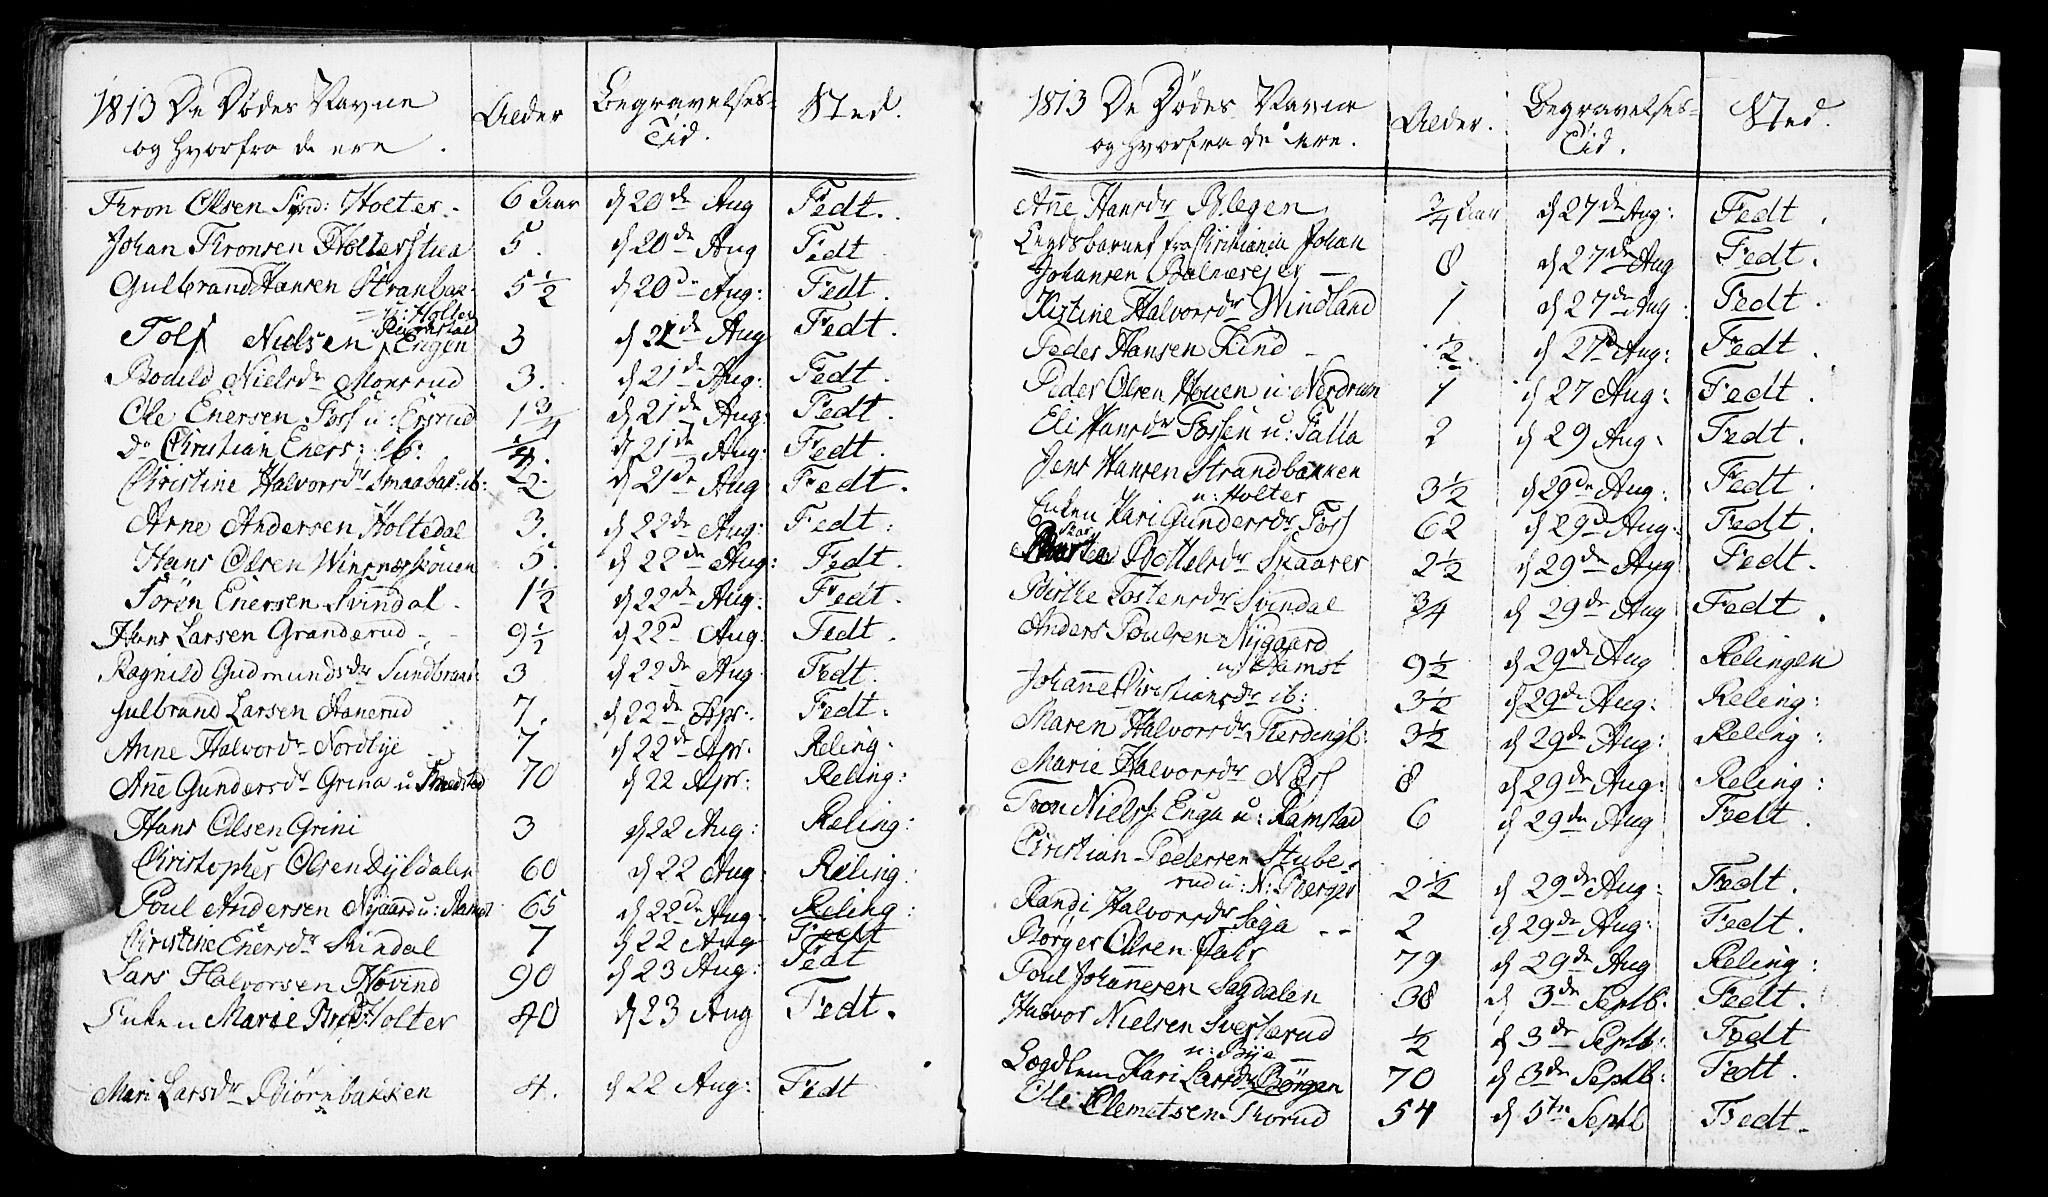 1813 De Dödes Navne Alder Begravelses- Sted.
og hvorfra de ere . Tid.
Thron Olsen Synd: Holter. 6 Aar d 20de Aug Fedt.
Johan Thronsen Holterstua 5. d 20de Aug Fedt
Gulbrand Hansen Stranbak: 5½ d 20de Aug: Fedt.
u: Holter
Ramstad
Tolf Nielsen Engen 3 d 21de Aug Fedt.
Bodild Nielsdr Monsrud 3. d 21de Aug: Fedt.
Ole Enersen Foss u: Ersrud 1¾ d 21de Aug: Fedt.
do Christian Eners: ib: ¼. d 21de Aug: Fedt.
Christine Halvorsdr Smaabak: ib: ½ d 21de Aug Fedt.
Arne Andersen Holtedal 3. d 22de Aug: Fedt.
Hans Olsen Winsnesskouen 5. d 22de Aug: Fedt.
Sören Enersen Svindal. 1½ d 22de Aug: Fedt.
Hans Larsen Granderud 9½ d 22d Aug: Fedt.
Ragnild Gudmundsdr Sundbraat: 3 d 22de Aug: Fedt.
Gulbrand Larsen Hanerud 7. d 22de Apr: Fedt.
Anne Halvordr Nordbye 7 d 22de Apr: Reling:
Añe Gundersdr Grina u Smedstad 70 d 22 Apr: Reling:
Hans Olsen Grini 3 d 22 Aug: Reling:
Christopher Olsen Dyldalen 60 d 22 Aug: Reling:
Poul Andersen Nygaard u: Ramst 65 d 22de Aug: Reling:
Christine Enersdr Svindal 7 d 22 Aug Fedt
Lars Halvorsen Hovind 90 d 23 Aug: Fedt
Enken Marie Holter 40 d 23 Aug Fedt.
Mari Larsdr Biörnbakken 4. d 22 Aug: Fedt
1813 De Dödes Navne Alder. Begravelses- Sted.
og hvorfra de ere. Tid.
Añe Hansdr Blegen ¾ Aar d 27de Aug: Fedt.
Legdsbarnet fra Christiania Johan
Johansen Balnæsejer 8 d 27de Aug Fedt.
Kistine Halvorsdr Windland 1 d 27de Aug: Fedt.
Peder Hansen Lind ½ d 27d Aug: Fedt.
Peder Olsen Houen u: Nerdrum 1 d 27 Aug: Fedt.
Eli Hansdr Fossen u: Falla 2 d 29 Aug: Fedt.
Jens Hansen Strandbakken
u: Holter 3½ d 29de Aug: Fedt.
Enken Kari Gundersdr Foss 62 d 29d Aug: Fedt.
Bottelsdr Skaarer 2½ d 29de Aug Fedt.
Birthe Tostensdr Svindal ¾ d 29de Aug Fedt.
Anders Poulsen Nygaard
u Ramst 9½ d 29de Aug Relingen
Johañe Christiansdr ib: 3½ d 29de Aug: Reling:
Maren Halvorsdr Fierdingb: 3½ d 29de Aug: Reling:
Marie Halvorsdr Næss 8 d 29de Aug: Reling:
Tron Niels: Enga u: Ramstad 6 d 29de Aug Fedt.
Christian Pedersen Stube-
rud u: N: Sverger 2½ d 29de Aug: Fedt.
Randi Halvorsdr Saga 2 d 29de Aug: Fedt.
Börger Olsen Jahr 79 d 29de Aug Reling:
Poul Johañesen Sagdalen 38 d 3de Septb: Fedt.
Halvor Nielsen Sverterud
u: Bye ½ d 3de Septb: Fedt
Logdlem Kari Larsdr Börgen 70 d 3de Septb: Fedt.
Ole Clemetsen Thorud 54 d 5te Septb Fedt.